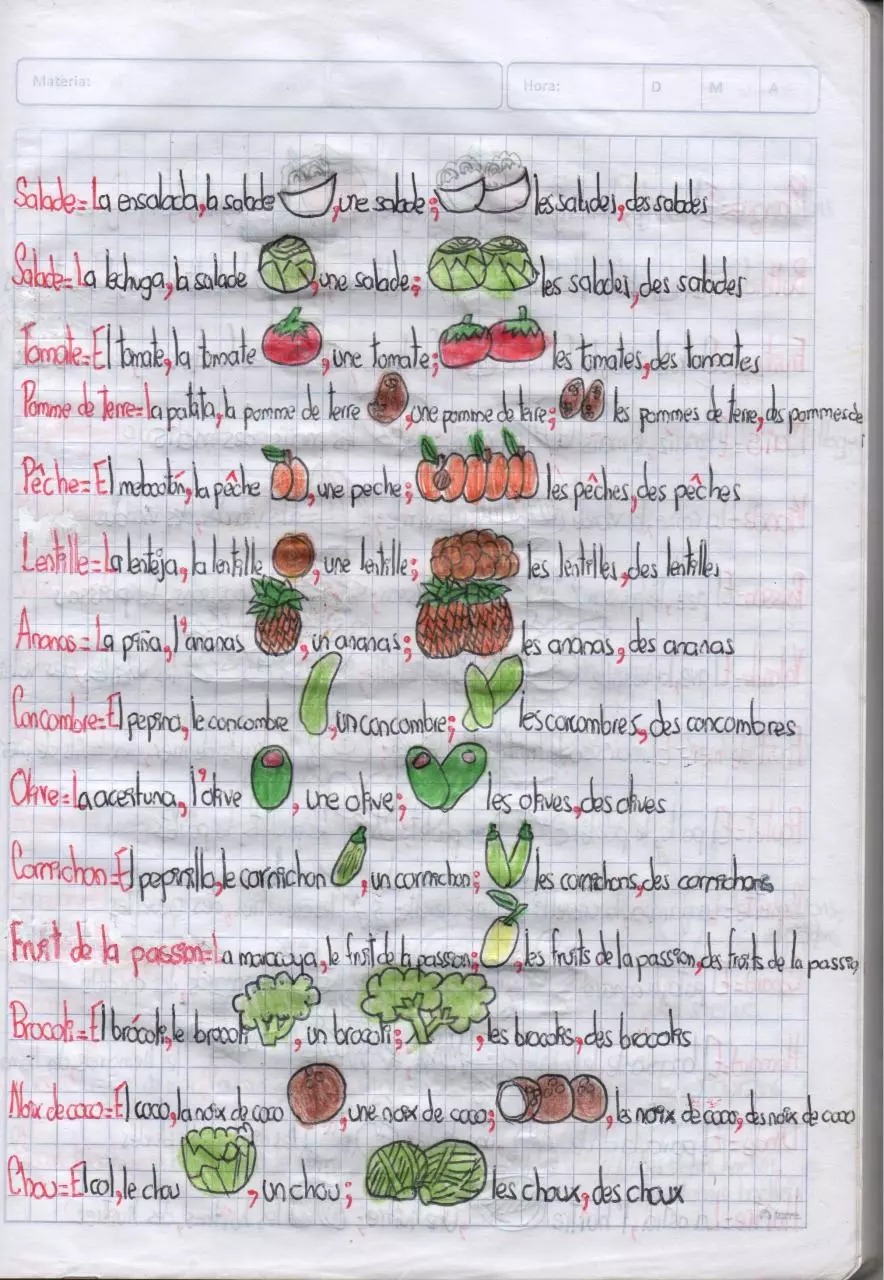 Materia: Hora: D M A
Salade= La ensalada, la salade , une salade; les salades, des salades
Salade= La lechuga, la salade , une salade; les salades, des salades
Tomate= El tomate, la tomate , une tomate; les tomates, des tomates
Pomme de terre= la patata, la pomme de terre , une pomme de terre; les pommes de terre, des pommes de
Pêche= El melocotón, la pêche , une peche; les pêches, des pêches
Lentille= La lenteja, la lentille , une lentille; les lentilles, des lentilles
Ananas= La piña, l'ananas , un ananas; les ananas, des ananas
Concombre= El pepino, le concombre , un concombre; les concombres, des concombres
Olive= La aceituna, l'olive , une olive; les olives, des olives
Cornichon= El pepinillo, le cornichon , un cornichon; les cornichons, des cornichons
Fruit de la passion= La maracuya, le fruit de la passion; , les fruits de la passion, des fruits de la passio
Brocoli= El brócoli, le brocoli , un brocoli; , les brocolis, des brocolis
Noix de coco= El coco, la noix de coco , une noix de coco; , les noix de coco, des noix de coco
Chou= El col, le chou , un chou; les choux, des choux